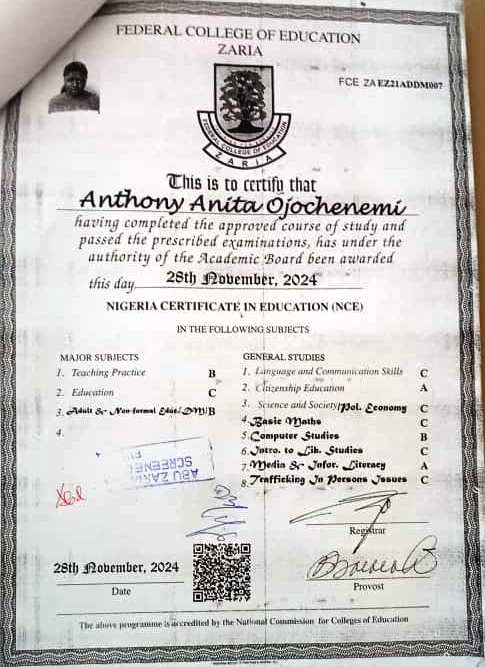 FEDERAL COLLEGE OF EDUCATION
ZARIA
FCE ZA EZ21ADDM007
FEDERAL COLLEGE OF EDUCATION
ZARIA
This is to certify that
Anthony Anita Ojochenemi
having completed the approved course of study and
passed the prescribed examinations, has under the
authority of the Academic Board been awarded
this day 28th November, 2024
NIGERIA CERTIFICATE IN EDUCATION (NCE)
IN THE FOLLOWING SUBJECTS
MAJOR SUBJECTS
1. Teaching Practice B
2. Education C
3. Adult & Non-formal Educ/DM/B
4.
GENERAL STUDIES
1. Language and Communication Skills C
2. Citizenship Education A
3. Science and Society/Pol. Economy C
4. Basic Maths C
5. Computer Studies B
6. Intro. to Lib. Studies C
7. Media & Infor. Literacy A
8. Trafficking In Persons Issues C
ABU ZARIA
SCREENED
Registrar
28th November, 2024
Date
Provost
The above programme is accredited by the National Commission for Colleges of Education